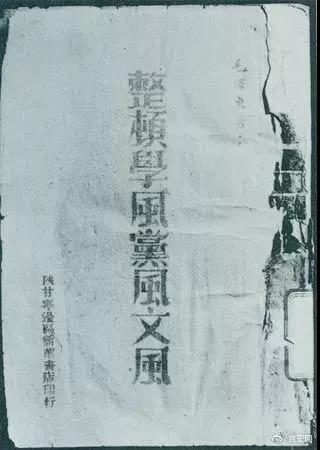 毛泽东著
整頓學風黨風文風
陝甘寧邊區新華書店印行
党史网